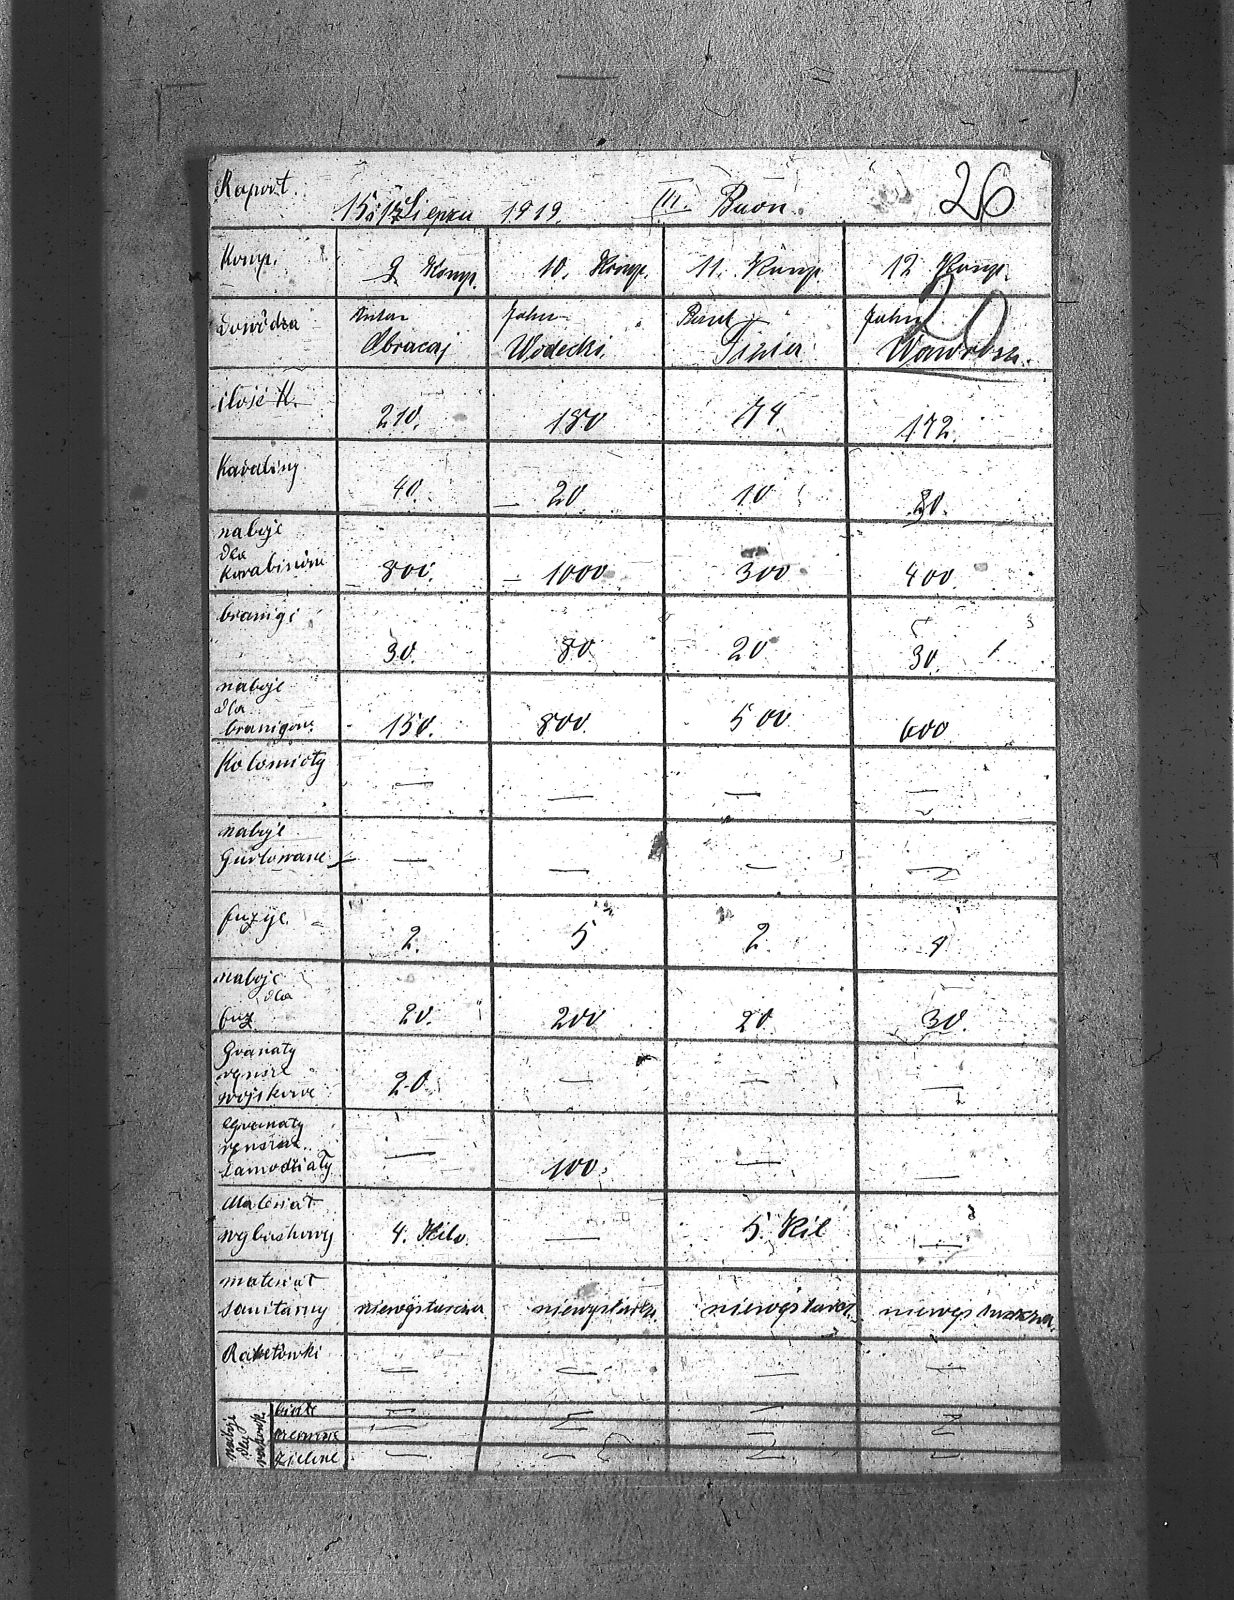 Raport. 15 Siepnia 1919. III. Baon. 26
Komp. 9 Komp. 10. Komp. 11. Komp. 12 Komp.
Dowódca Anton John Paul John 20
Obracaj Wodecki. Wawrosz.
ilość K. 210. 180 174. 172.
Karabiny 40. 20 10 30.
naboje
dla
Karabinów 800. 1000 300 400
branigi 30. 80 20 30.
naboje
dla
branigów. 150. 800. 500 600
Kolomioty — — — —
naboje
Gurtowane — — — —
fuzyje 2. 5 2. 4
naboje
dla
fuz. 20. 200 20. 30.
Granaty
ręczne
wojskowe 20. — — —
Granaty
ręczne
samodziały — 100. — —
Materiał
wybuchowy 4. Kilo. — 5. Kil —
materiał
sanitarny niewystarcza niewystarcza niewystarcz niewystarcza
Raketówki — — — —
naboje
dla
raketówk. białe — — — —
czerwone — — — —
zielone — — — —